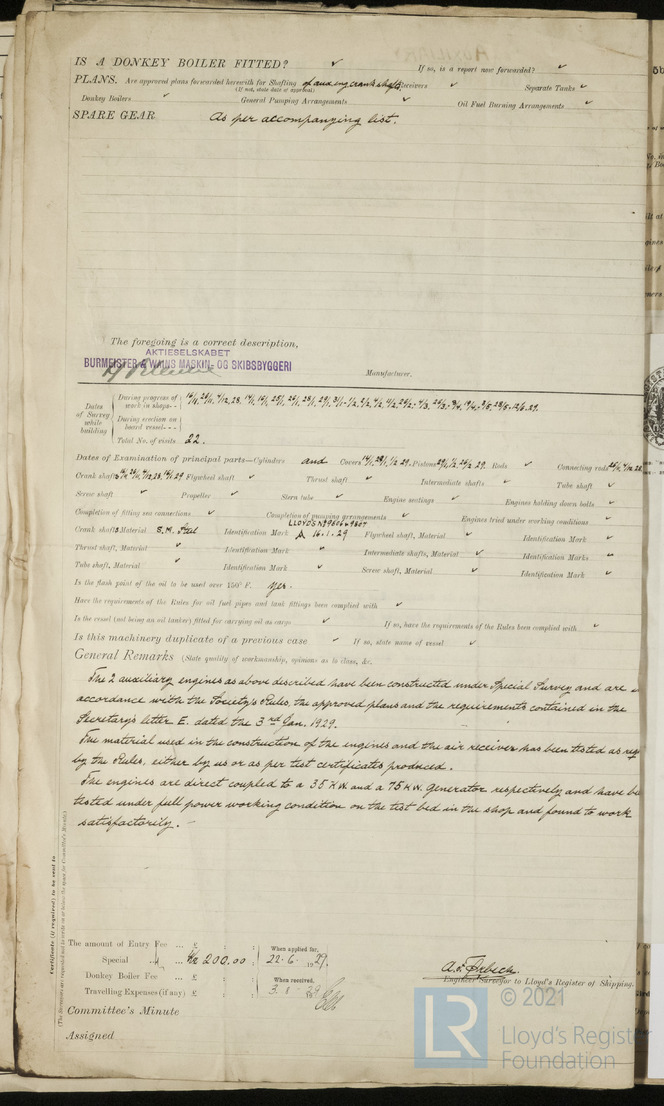 IS A DONKEY BOILER FITTED? ✓ If so, is a report now forwarded? ✓
PLANS. Are approved plans forwarded herewith for Shafting of aux eng crankshafts Receivers ✓ Separate Tanks ✓
(If not, state date of approval)
Donkey Boilers ✓ General Pumping Arrangements ✓ Oil Fuel Burning Arrangements ✓
SPARE GEAR As per accompanying list.
The foregoing is a correct description,
AKTIESELSKABET
BURMEISTER & WAINS MASKIN- OG SKIBSBYGGERI
Manufacturer.
Dates of Survey while building
During progress of work in shops - -
During erection on board vessel - - -
Total No. of visits 22.
Dates of Examination of principal parts—Cylinders and Covers Pistons Rods ✓ Connecting rods
Crank shaft Flywheel shaft ✓ Thrust shaft ✓ Intermediate shafts ✓ Tube shaft ✓
Screw shaft ✓ Propeller ✓ Stern tube ✓ Engine seatings ✓ Engines holding down bolts ✓
Completion of fitting sea connections ✓ Completion of pumping arrangements ✓ Engines tried under working conditions ✓
Crank shafts Material S.M. Steel Identification Mark LLOYD'S No 9606 & 9607 16.1.29 Flywheel shaft, Material ✓ Identification Mark ✓
Thrust shaft, Material ✓ Identification Mark ✓ Intermediate shafts, Material ✓ Identification Marks ✓
Tube shaft, Material ✓ Identification Mark ✓ Screw shaft, Material ✓ Identification Mark ✓
Is the flash point of the oil to be used over 150° F. yes.
Have the requirements of the Rules for oil fuel pipes and tank fittings been complied with ✓
Is the vessel (not being an oil tanker) fitted for carrying oil as cargo ✓ If so, have the requirements of the Rules been complied with ✓
Is this machinery duplicate of a previous case ✓ If so, state name of vessel ✓
General Remarks (State quality of workmanship, opinions as to class, &c.
The 2 auxiliary engines as above described have been constructed under Special Survey and are
accordance with the Society's Rules, the approved plans and the requirements contained in the
Secretary's letter E. dated the 3rd Jan. 1929.
The material used in the construction of the engines and the air receiver has been tested as
by the Rules, either by us or as per test certificates produced.
The engines are direct coupled to a 35 KW. and a 75 KW. Generator respectively and have
tested under full power working condition on the test bed in the shop and found to work
satisfactorily. -
Certificate (if required) to be sent to
(The Surveyors are requested not to write on or below the space for Committee's Minute.)
The amount of Entry Fee ... £ : :
Special ... Kr 200.00 :
Donkey Boiler Fee ... £ : :
Travelling Expenses (if any) £ : :
When applied for,
22.6.1929.
When received,
3.8.1929
Engineer Surveyor to Lloyd's Register of Shipping.
Committee's Minute
Assigned
LR
© 2021
Lloyd's Register
Foundation